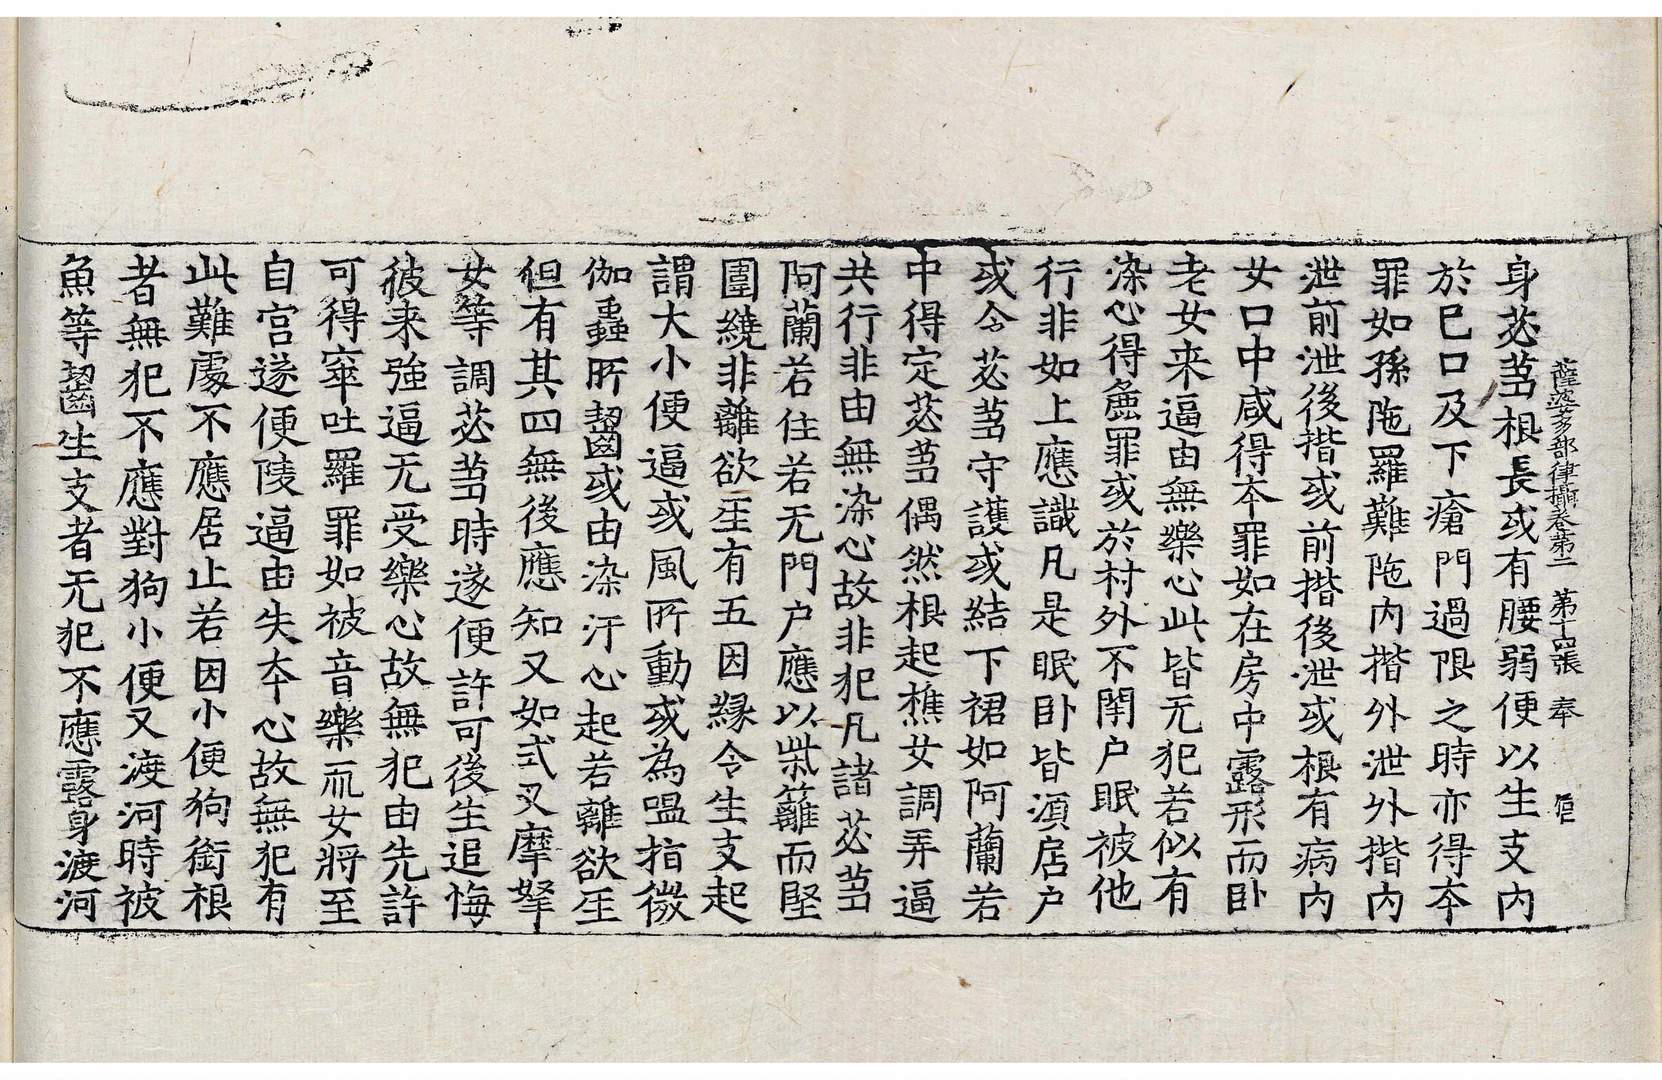 薩婆多部律攝卷第二　第十四張　奉
身苾芻根長或有腰弱便以生支內
於已口及下瘡門過限之時亦得夲
罪如孫陁羅難陁內揩外泄外揩內
泄前泄後揩或前揩後泄或根有病內
女口中咸得夲罪如在房中露形而卧
老女来逼由無樂心此皆无犯若似有
染心得麁罪或於村外不閇户眠被他
行非如上應識凡是眠卧皆湏居户
或令苾芻守護或結下裙如阿蘭若
中得定苾芻偶然根起樵女調弄逼
共行非由無染心故非犯凡諸苾芻
阿蘭若住若无門户應以柴籬而堅
圍繞非離欲生有五因縁令生支起
謂大小便逼或風所動或為嗢指徴
伽蟲所齧或由染汙心起若離欲生
但有其四無後應知又如式叉摩拏
女等調苾芻時遂便許可後生追悔
彼来強逼无受樂心故無犯由先許
可得窣吐羅罪如被音樂而女將至
自宮遂便陵逼由失夲心故無犯有
此難處不應居止若因小便狗銜根
者無犯不應對狗小便又渡河時被
魚等齧生支者无犯不應露身渡河